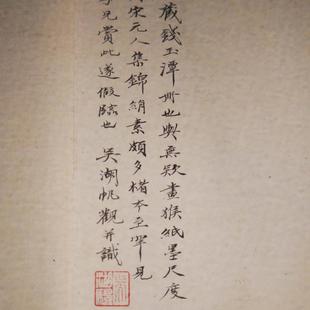 藏錢玉潭卅也與無款畫猴紙墨尺度
宋元人集錦絹素頗多楮本至罕見
兄賞此遂倣臨也 吳湖帆觀并識